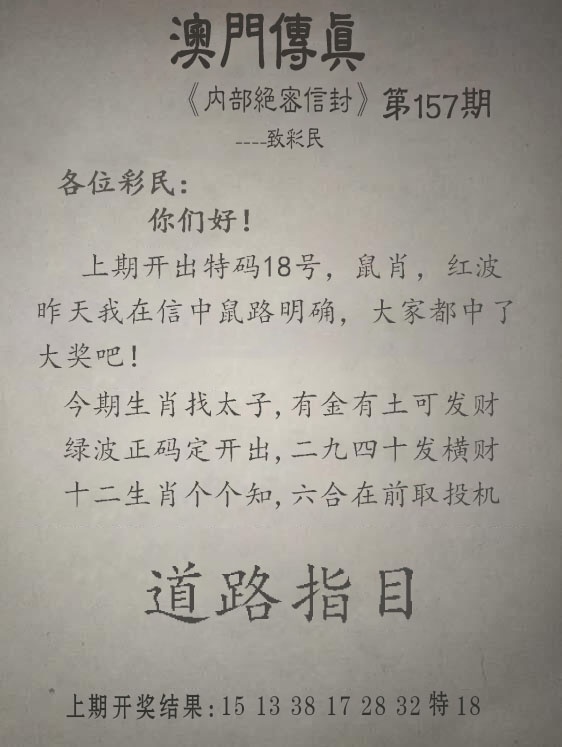 澳門傳眞
《内部絕密信封》第157期
----致彩民
各位彩民:
你们好!
上期开出特码18号，鼠肖，红波
昨天我在信中鼠路明确，大家都中了
大奖吧!
今期生肖找太子,有金有土可发财
绿波正码定开出,二九四十发横财
十二生肖个个知,六合在前取投机
道路指目
上期开奖结果:15 13 38 17 28 32 特 18